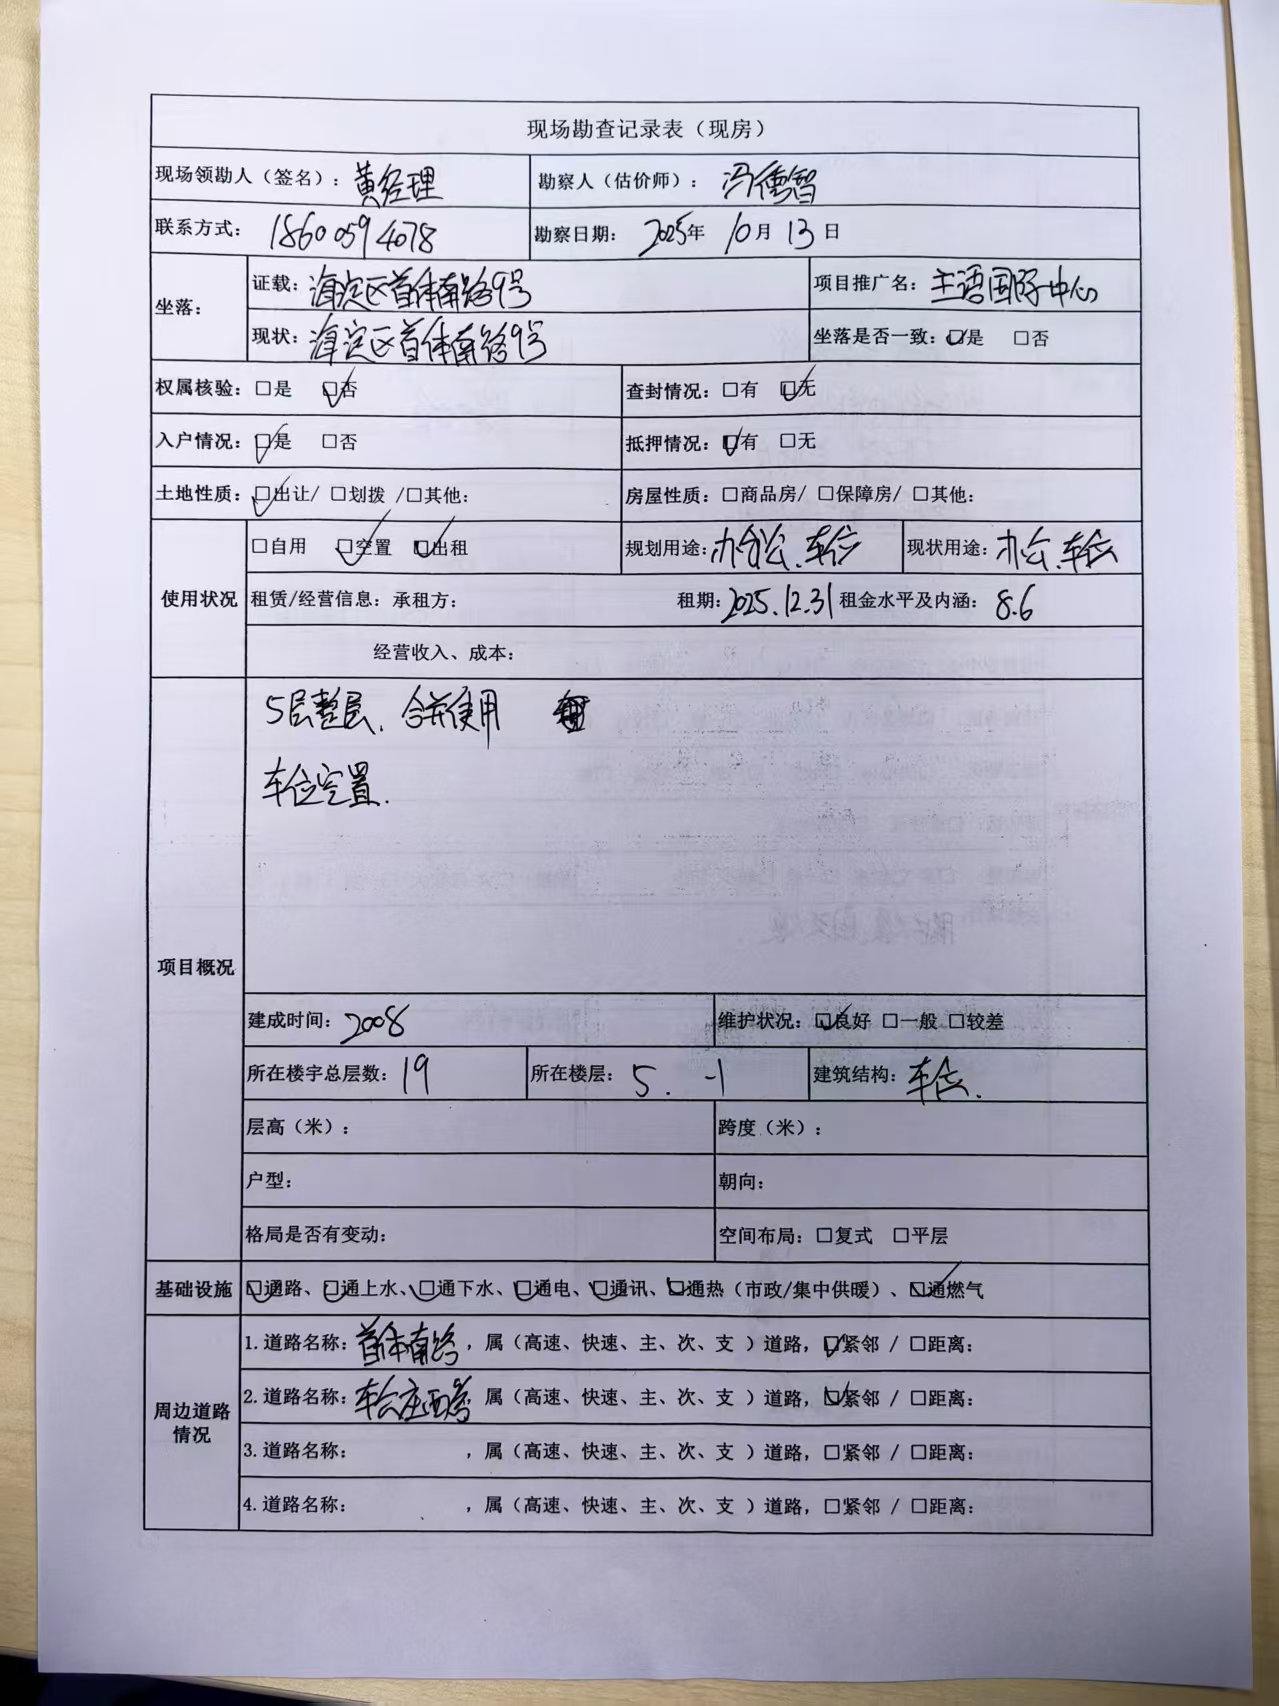 现场勘查记录表（现房）
现场领勘人（签名）：黄经理 勘察人（估价师）：冯儒智
联系方式：18600594078 勘察日期：2025年 10月 13日
坐落：
证载：海淀区首体南路9号 项目推广名：主语国际中心
现状：海淀区首体南路9号 坐落是否一致：☑是 □否
权属核验：□是 ☑否 查封情况：□有 ☑无
入户情况：☑是 □否 抵押情况：☑有 □无
土地性质：☑出让/ □划拨 /□其他： 房屋性质：□商品房/ □保障房/ □其他：
使用状况
□自用 ☑空置 ☑出租 规划用途：办公、车位 现状用途：办公、车位
租赁/经营信息：承租方： 租期：2025.12.31 租金水平及内涵：8.6
经营收入、成本：
项目概况
5层整层、合并使用
车位空置.
建成时间：2008 维护状况：☑良好 □一般 □较差
所在楼宇总层数：19 所在楼层：5. -1 建筑结构：车位.
层高（米）： 跨度（米）：
户型： 朝向：
格局是否有变动： 空间布局：□复式 □平层
基础设施 ☑通路、☑通上水、☑通下水、☑通电、☑通讯、☑通热（市政/集中供暖）、☑通燃气
周边道路情况
1.道路名称：首体南路，属（高速、快速、主、次、支 ）道路，☑紧邻 / □距离：
2.道路名称：车公庄西路 属（高速、快速、主、次、支 ）道路，☑紧邻 / □距离：
3.道路名称： ，属（高速、快速、主、次、支 ）道路，□紧邻 / □距离：
4.道路名称： ，属（高速、快速、主、次、支 ）道路，□紧邻 / □距离：